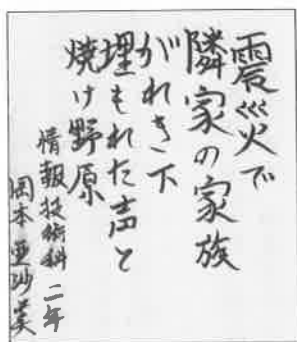 震災で
隣家の家族
がれき下
埋もれた声と
焼け野原
情報技術科 二年
岡本 亜沙美